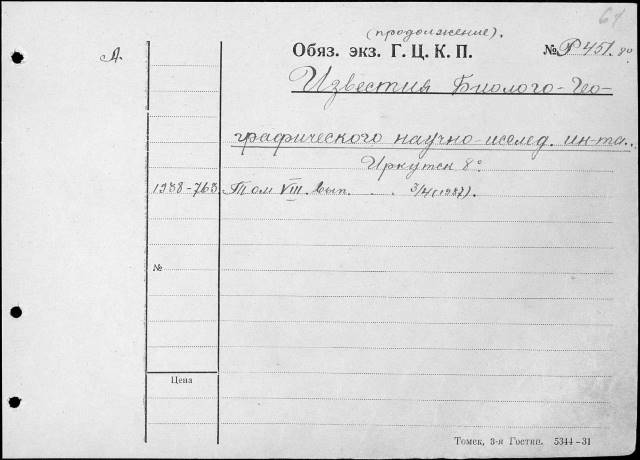 61
(продолжение).
А. Обяз. экз. Г. Ц. К. П. № Р 451. 80
Известия Биолого-Гео-
графического научно-исслед. ин-та.
Иркутск 8°
1938-763 Том VIII. Вып. . . 3/4 (1937).
№
Цена
Томск, 3-я Гостип. 5344-31